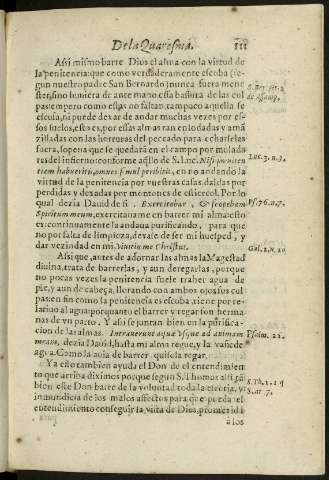 De la Quaresma. 111
Assi mismo barre Dios el alma con la virtud de
la penitencia: que como verdaderamente escoba (se-
gun nuestro padre San Bernardo) nunca fuera mene
ster, sino huniera de ante mano essa bassura de las cul
pas: empero como estas no faltan, tampoco aquella se
escusa, ni puede dexar de andar muchas vezes por es-
sos suelos, esto es, por essas almas tan enlodadas y amã
zilladas con las horruras del peccado para echarselas
fuera, so pena que se quedarã en el campo por mulada
res del infierno: conforme aq̃llo de S. Luc. Nisi pœniten
tiam habueritis, omnes simul peribitis, en no andando la
virtud de la penitencia por vuestras casas, daldas por
perdidas y dexadas por montones de estiercol. Por lo
qual dezia Dauid de si. Exercitabar, & scopebam
Spiritum meum, exercitauame en barrer mi alma esto
es: continuamente la andaua purificando, para que
no por falta de limpieza, dexasse de ser mi huesped, y
dar vezindad en mi, Viuit in me Christus.
Assi que, antes de adornar las almas la Magestad
diuina, trata de barrerlas, y aun deregarlas, porque
no pocas vezes la penitencia suele traher agua de
pie, y aun de cabeça, llorando con ambos ojos sus cul
pas: en fin como la penitencia es escoba, tiene por re-
lacion al agua: porque anto el barrer y regar son herma
nas de vn parto. Y assi se juntan bien en la purifica-
cion de las almas. Intrauerunt aquæ vsque ad animam
meam, dezia Dauid, hasta mi alma regue, y la vañe de
agua. Como la auia de barrer, quisola regar.
Ya eño tambien ayuda el Don de el entendimien
to que arriba diximos porque segun S. Thomas assi tã
bien este Don barre de la voluntad toda la
inmundicia de los malos affectos para que pueda el
entendimiento conseguir la vista de Dios, prometida
a los
S. Ber. ser. 2
de Assump.
Luc. 13. n. 3.
Ps. 76. n. 7.
Gal. 2. n. 20.
Psalm. 22.
S. Th. 2. 2. q
8. ar. 7.